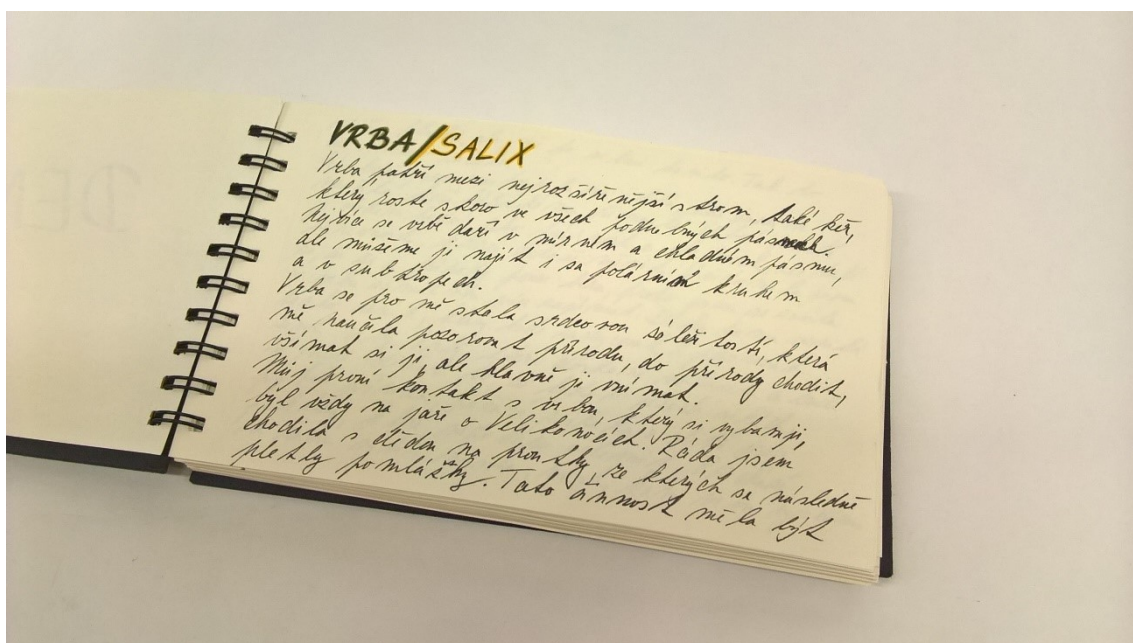 VRBA/SALIX
Vrba patří mezi nejrozšířenější strom, také keř,
který roste skoro ve všech podnebných pásmech.
Nejvíce se vrbě daří v mírném a chladném pásmu,
ale můžeme ji najít i za polárním kruhem
a v subtropech.
Vrba se pro mě stala srdcovou záležitostí, která
mě naučila pozorovat přírodu, do přírody chodit,
všímat si jí, ale hlavně ji vnímat.
Můj první kontakt s vrbou, který si vybavuji,
byl vždy na jaře o Velikonocích. Ráda jsem
chodila s dědou na proutky, ze kterých se následně
pletly pomlázky. Tato činnost měla být